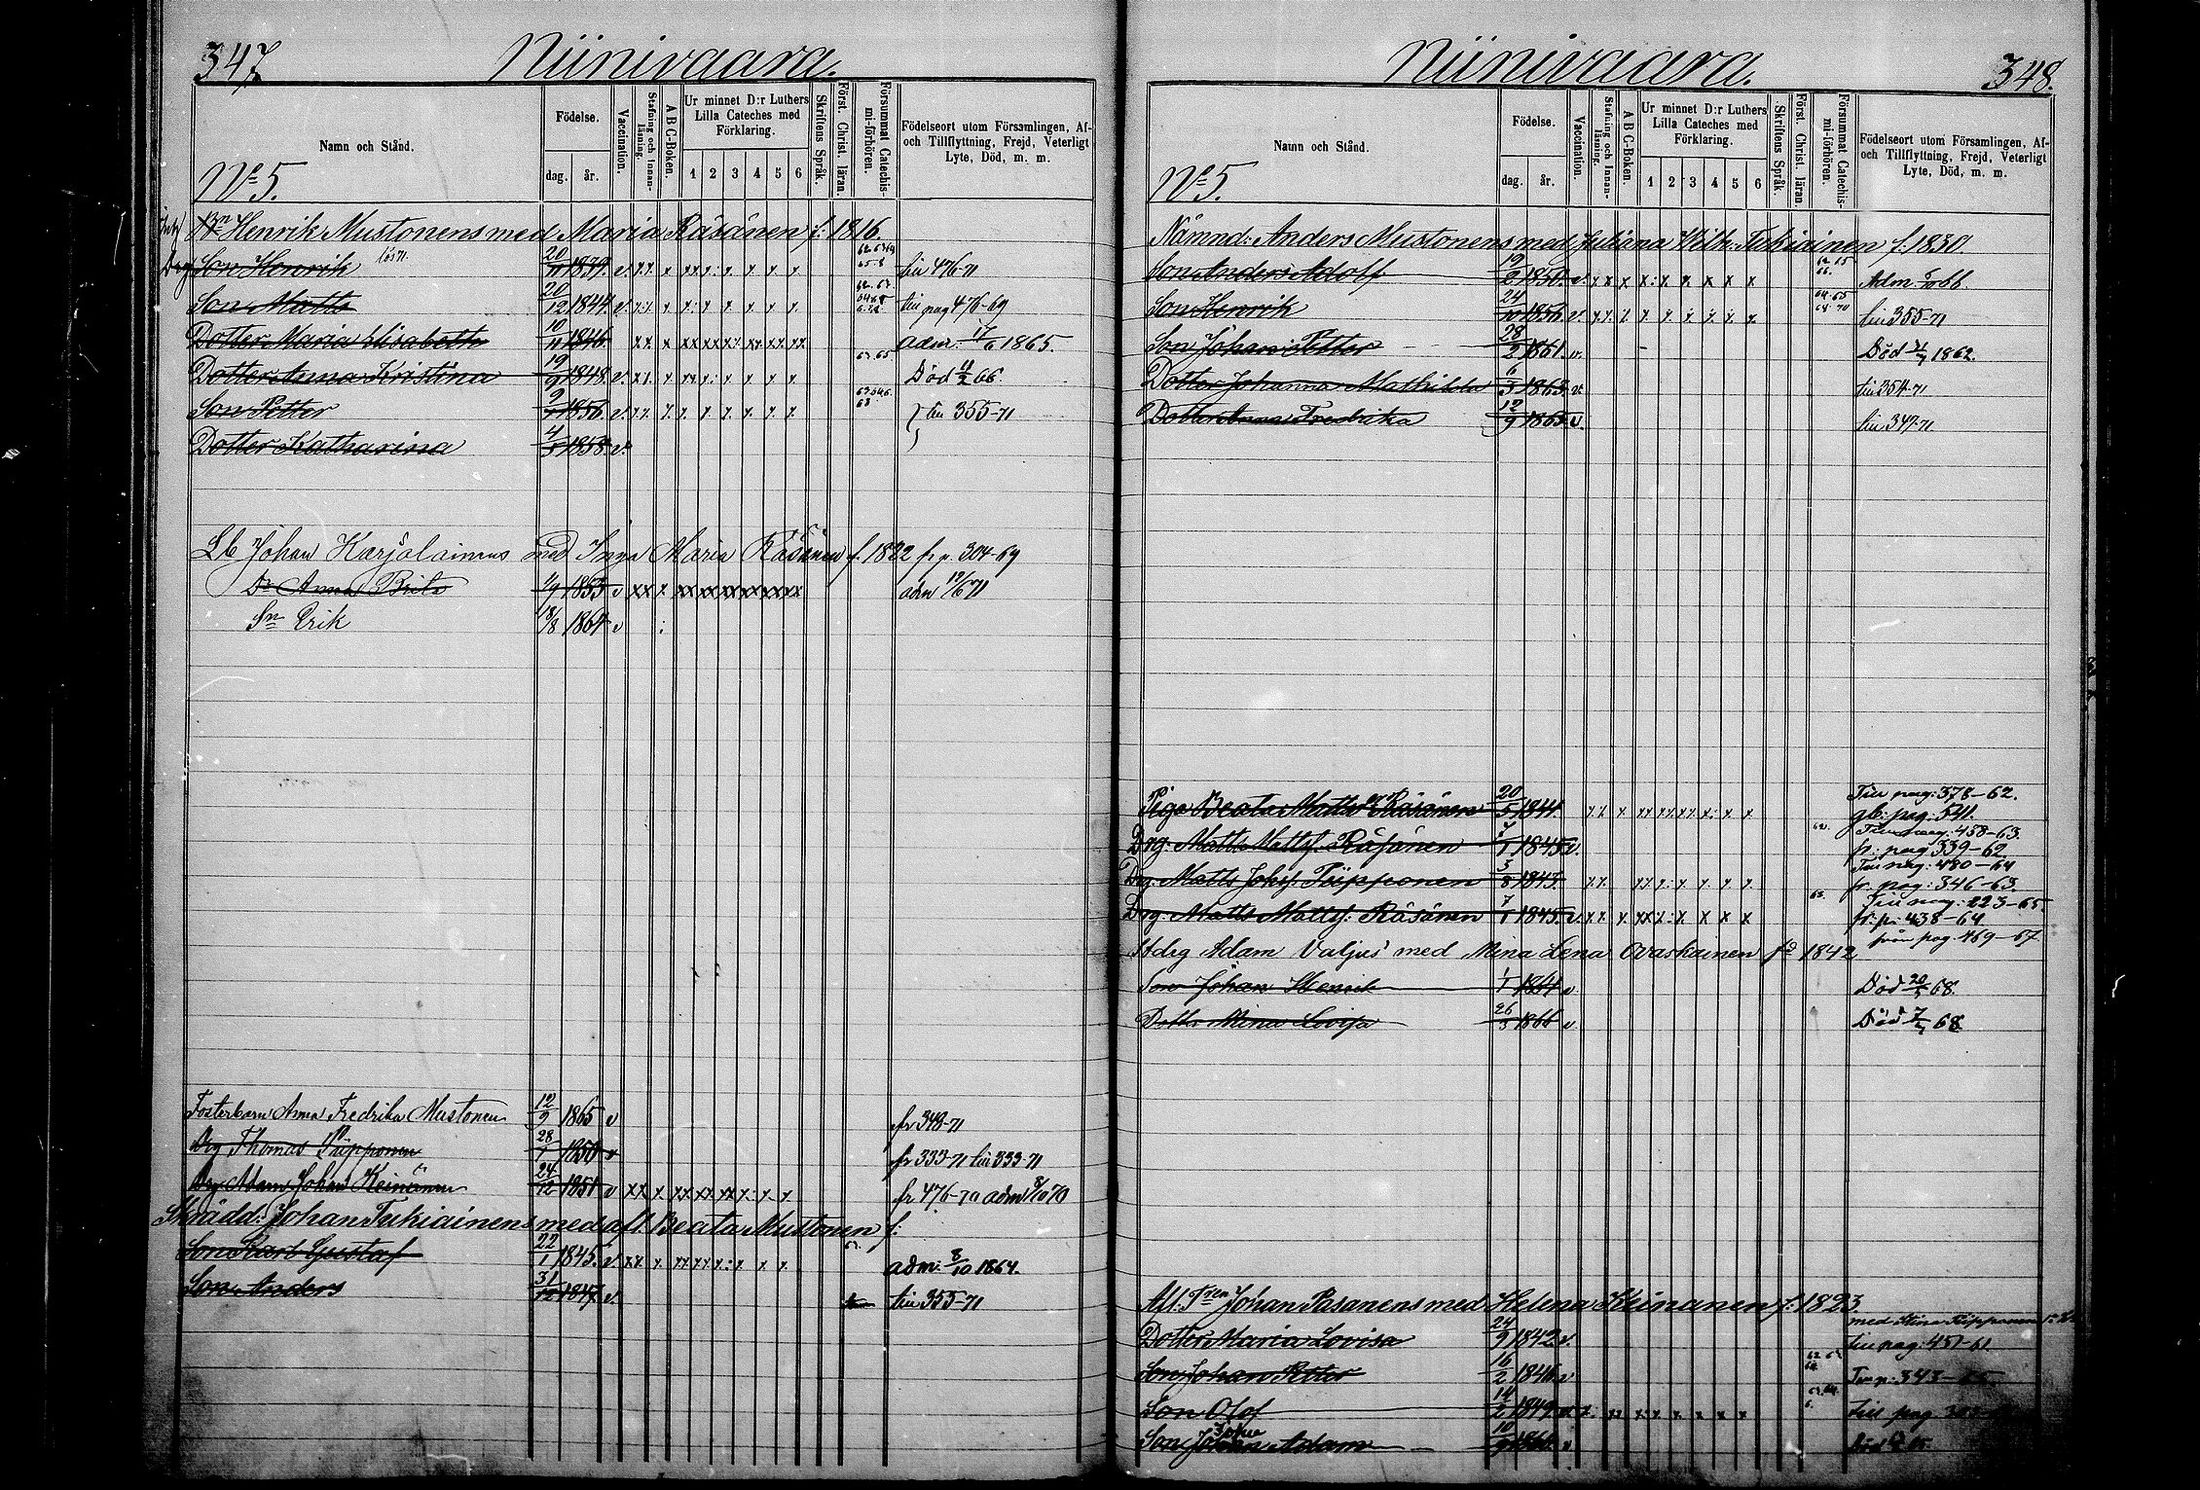 347 Niinivaara.
Namn och Stånd.
Födelse.
dag. år.
Vaccination.
Stafning och Innanläsning.
A B C-Boken.
Ur minnet D:r Luthers Lilla Cateches med Förklaring.
1 2 3 4 5 6
Skriftens Språk.
Först. Christ. läran.
Försummat Catechismi-förhören.
Födelseort utom Församlingen, Af- och Tillflyttning, Frejd, Veterligt Lyte, Död, m. m.
No 5.
Henrik Mustonens med Maria Räsänen f: 1816
Son Henrik 20/11 1839. v. till 476-71
Son Matts 20/12 1844. v. till pag 476-69
Dotter Maria Elisabeth 10/11 1846. adm: 17/6 1865.
Dotter Anna Kristina 19/9 1848. v. Död 11/2 66.
Son Petter 1856. v. till 355-71
Dotter Katharina 4/5 1858. v.
Lb Johan Karjalainens med Inga Maria Räsänen f. 1822 fr p. 304-69
Dr Anna Brita 1/9 1853 v adm 19/6 71
Sn Erik 18/8 1864 v
Fosterbarn Anna Fredrika Mustonen 12/9 1865 v fr 348-71
Drg Thomas Piipponen 28/1 1850 v fr 333-71 till 333-71
Drg Adam Johan Keinänen 24/12 1851 v fr 476-70 adm 8/10 70
Skrädd: Johan Tukiainens med afl. Beata Mustonen f:
Son Karl Gustaf 22/1 1845. v. adm: 8/10 1864.
Son Anders 31/12 1847. v. till 355-71
Niinivaara. 348.
Namn och Stånd.
Födelse.
dag. år.
Vaccination.
Stafning och Innanläsning.
A B C-Boken.
Ur minnet D:r Luthers Lilla Cateches med Förklaring.
1 2 3 4 5 6
Skriftens Språk.
Först. Christ. läran.
Försummat Catechismi-förhören.
Födelseort utom Församlingen, Af- och Tillflyttning, Frejd, Veterligt Lyte, Död, m. m.
No 5.
Nämnd: Anders Mustonens med Juliana Wilh: Tukiainen f. 1830.
Son Anders Adolf 19/2 1850. v. Adm.
Son Henrik 24/10 1856. v. till 355-71
Son Johan Petter 28/2 1861. v. Död 1862.
Dotter Johanna Mathilda 6/3 1863. v. till 354-71
Dotter Anna Fredrika 12/9 1865. v. till 347-71
Piga Beata Mattsdr Räsänen 20/5 1844. Till pag: 378-62.
gb: pag: 341.
Drg: Matts Mattss: Räsänen 7/1 1845 v. Till pag: 458-63
fr: pag 339-62
Drg: Matts Johss. Piipponen 3/8 1843. Till pag: 480-64
fr. pag: 346-63.
Drg: Matts Mattss: Räsänen 7/1 1845. v. Till pag: 223-65
fr: p: 438-64
Stdrg Adam Valjus' med Mina Lena Ovaskainen fd 1842 från pag. 469-67
Son Johan Henrik 1/1 1864 v Död 20/ 68.
Dottr Mina Lovisa 26/3 1866 v Död 7/ 68
Afl: Johan Pasanens med Helena Keinänen f: 1823
Dotter Maria Lovisa 24/9 1842 v. till pag: 451-61
Son Johan Petter 16/2 1846 v
Son Olof 14/2 1849 v. till pag.
Son Johan Adam 10/ v